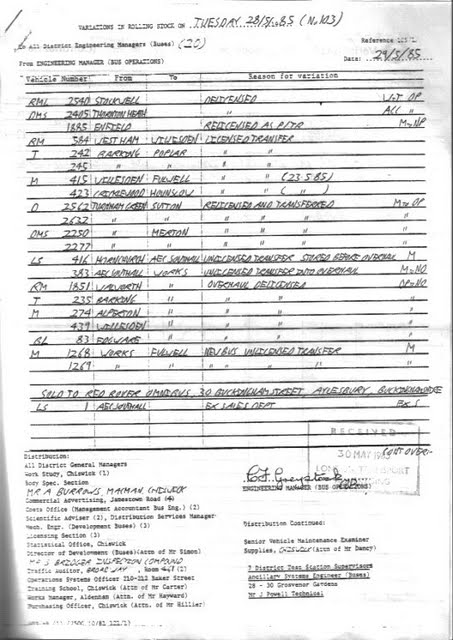 VARIATIONS IN ROLLING STOCK ON TUESDAY 28/5/85 (No103)
To All District Engineering Managers (Buses) (20)
Reference 125/1
From ENGINEERING MANAGER (BUS OPERATIONS)
Date: 29/5/85
Vehicle Number From To Reason for variation
RML 2540 STOCKWELL DELICENSED U-T OP
DMS 2405 THORNTON HEATH " ACC "
1885 ENFIELD RELICENSED AS P/TR M-NP
RM 584 WEST HAM WILLESDEN LICENSED TRANSFER
T 242 BARKING POPLAR " "
245 " " " "
M 415 WILLESDEN FULWELL " " (23.5.85)
423 CRICKLEWOOD HOUNSLOW " " ( " )
D 2562 TURNHAM GREEN SUTTON RELICENSED AND TRANSFERRED M-OP
2632 " " " "
DMS 2250 " MERTON " "
2277 " " " "
LS 416 HORNCHURCH AEC SOUTHALL UNLICENSED TRANSFER STORED BEFORE OVERHAUL M
383 AEC SOUTHALL WORKS UNLICENSED TRANSFER INTO OVERHAUL M-NO
RM 1851 WALWORTH " OVERHAUL DELICENSED OP-NO
T 235 BARKING " " "
M 274 ALPERTON " " "
439 WILLESDEN " " "
BL 83 EDGWARE " " "
M 1268 WORKS FULWELL NEW BUS UNLICENSED TRANSFER M
1269 " " " " "
SOLD TO RED ROVER OMNIBUS, 30 BUCKINGHAM STREET, AYLESBURY, BUCKINGHAMSHIRE
LS 1 AEC SOUTHALL EX SALES DEPT EX S
CONT OVER:-
RECEIVED
30 MAY 1985
LONDON TRANSPORT
ENGINEERING MANAGER (BUS OPERATIONS)
Distribution:
All District General Managers
Work Study, Chiswick (1)
Body Spec. Section
MR A BURROWS MACMAN, CHISWICK
Commercial Advertising, Jamestown Road (4)
Costs Office (Management Accountant Bus Eng.) (2)
Scientific Adviser (2), Distribution Services Manager
Mech. Engr. (Development Buses) (3)
Licensing Section (3)
Statistical Office, Chiswick
Director of Development (Buses)(Attn of Mr Simon)
MR S BRIDGER INSPECTION COMPOUND
Traffic Auditor, BROADWAY, Room 463 (2)
Operations Systems Officer 210-212 Baker Street
Training School, Chiswick (Attn of Mr Carter)
Works Manager, Aldenham (Attn. of Mr Hayward)
Purchasing Officer, Chiswick (Attn. of Mr Hillier)
Distribution Continued:
Senior Vehicle Maintenance Examiner
Supplies, CHISWICK (Attn of Mr Dancy)
7 District Test Station Supervisors
Ancillary Systems Engineer (Buses)
28 - 30 Grosvenor Gardens
Mr J Powell Technical